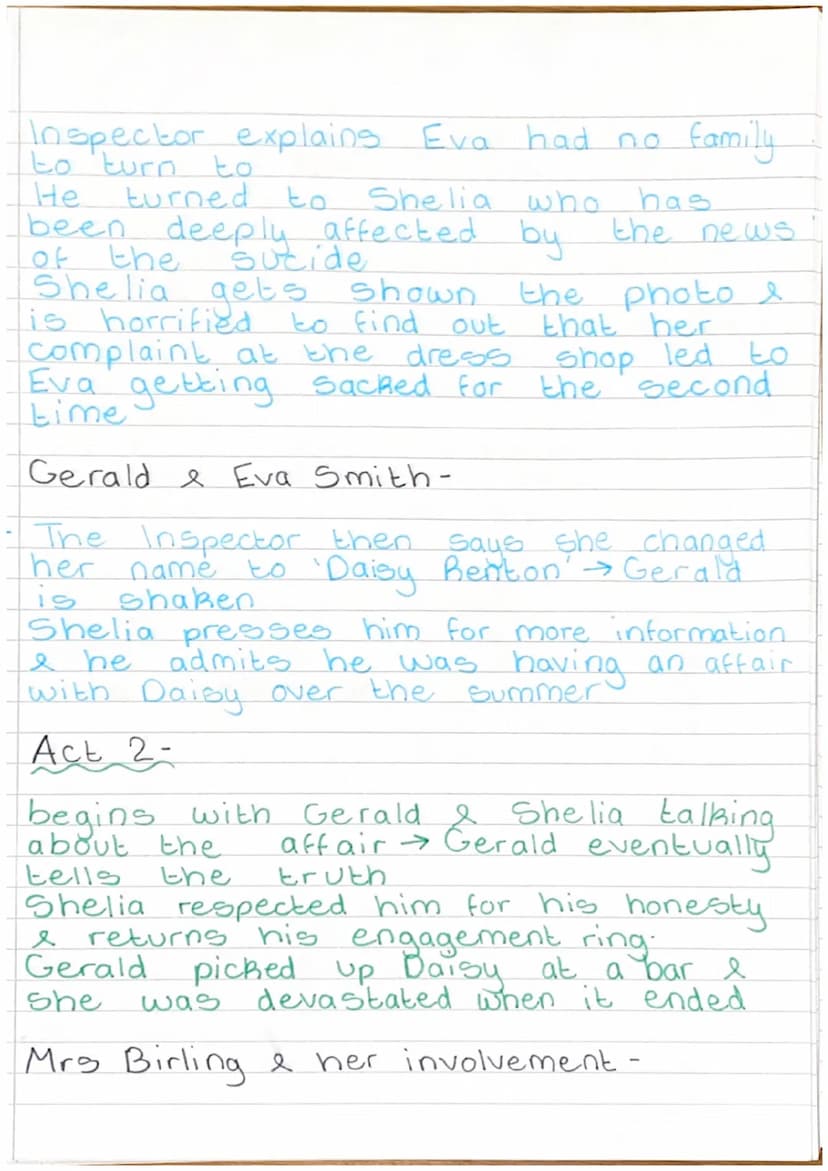 Inspector explains Eva had no family
to turn to
He turned to Shelia who has
been deeply affected by the news
of the sucide
Shelia gets shown the photo &
is horrified to find out that her
complaint at the dress shop led to
Eva getting sacked for the second
time
Gerald & Eva Smith-
- The Inspector then says she changed
her name to 'Daisy Renton' → Gerald
is shaken
Shelia presses him for more information
& he admits he was having an affair
with Daisy over the summer
Act 2-
begins with Gerald & Shelia talking
about the affair → Gerald eventually
tells the truth
Shelia respected him for his honesty
& returns his engagement ring.
Gerald picked up Daisy at a bar &
she was devastated when it ended
Mrs Birling & her involvement -